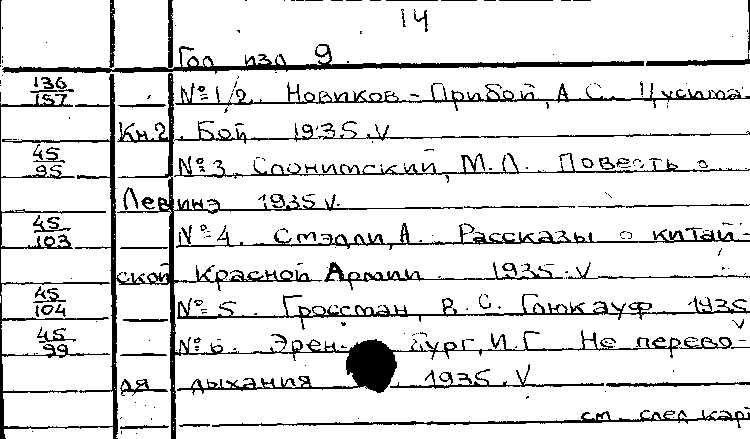 14
Год изд. 9
136/157 №1/2. Новиков-Прибой, А.С. Цусима
Кн.2. Бой 1935.V
45/95 №3. Слонимский, М.Л. Повесть о
Левинэ 1935 V.
45/103 №4. Смэдли, А. Рассказы о китай-
ской Красной Армии 1935.V
45/104 №5. Гроссман, В.С. Глюкауф 1935
V
45/99 №6. Эренбург, И.Г. Не перево-
дя дыхания 1935.V
см. след кар